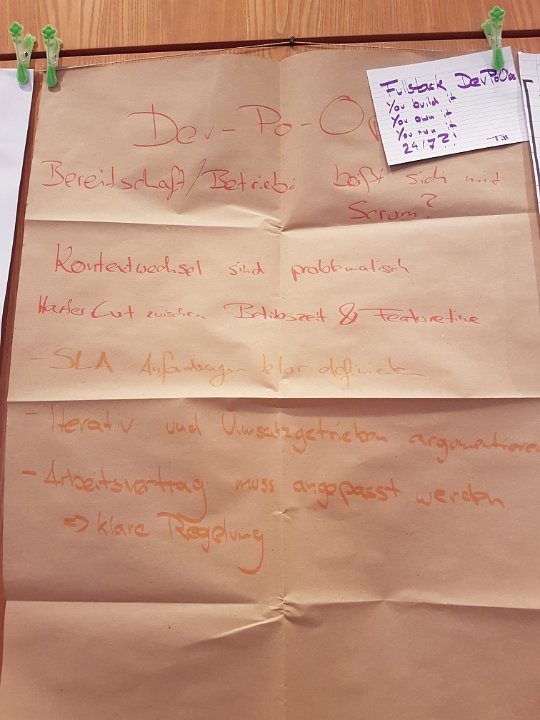 Dev-Po-Op
Fullstack DevPoOps
You build it
You own it
You run it
24/7?!
Bereitschaft/Betrieb: beißt sich mit
Scrum?
Kontextwechsel sind problematisch
Harter Cut zwischen Betriebszeit & Featuretime
- SLA Anforderungen klar definieren
- Iterativ und Umsatzgetrieben argumentieren
- Arbeitsvertrag muss angepasst werden
=> klare Regelung